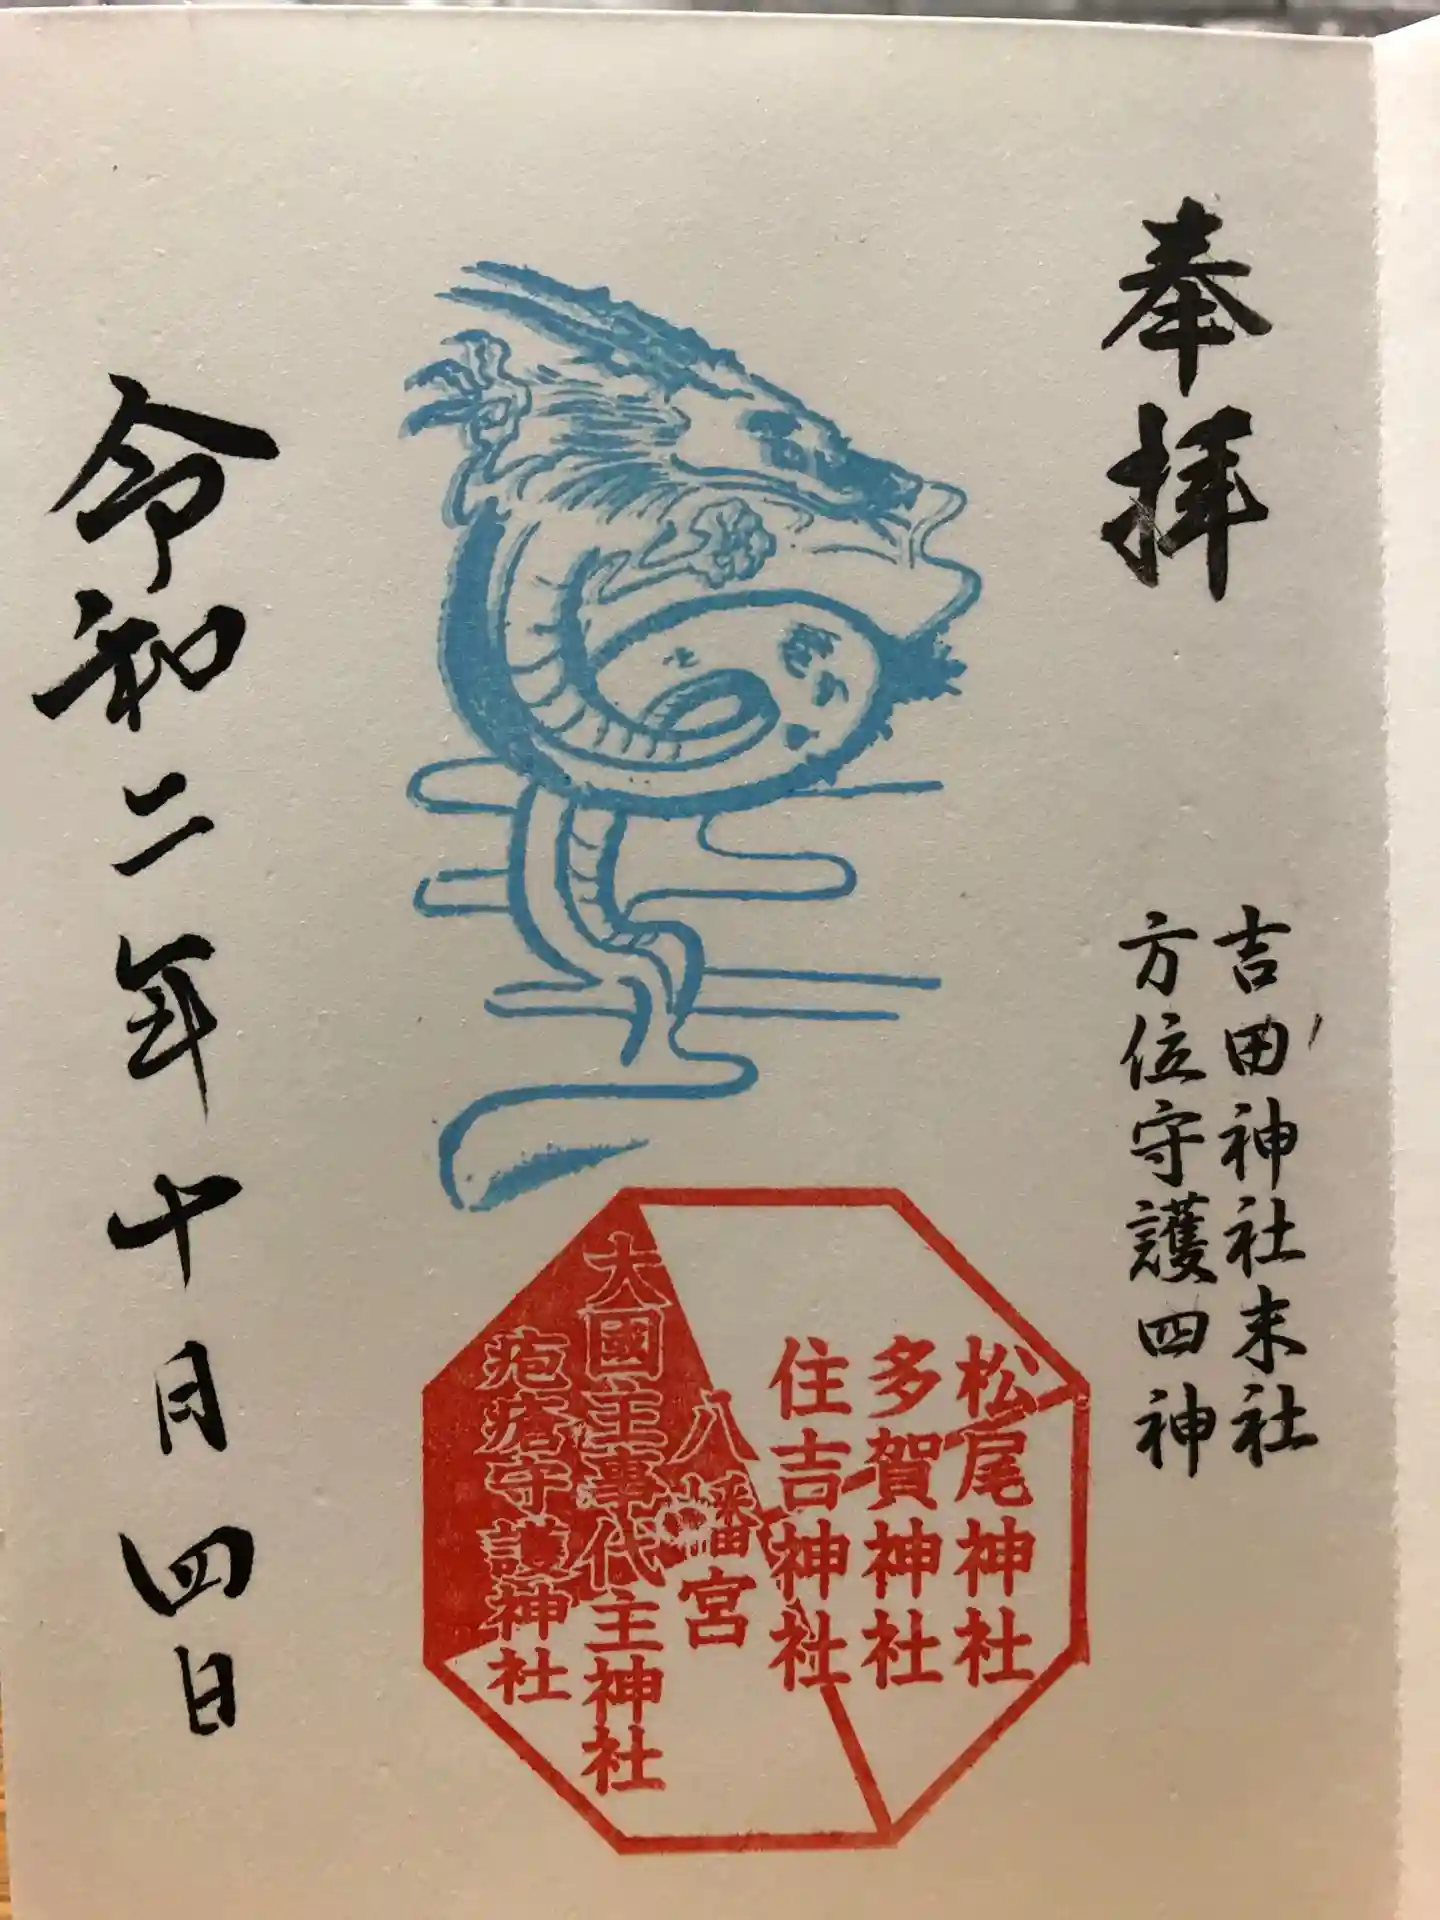 奉拝
吉田神社末社
方位守護四神
松尾神社
多賀神社
住吉神社
八幡宮
大國主事代主神社
疱瘡守護神社
令和二年十月四日